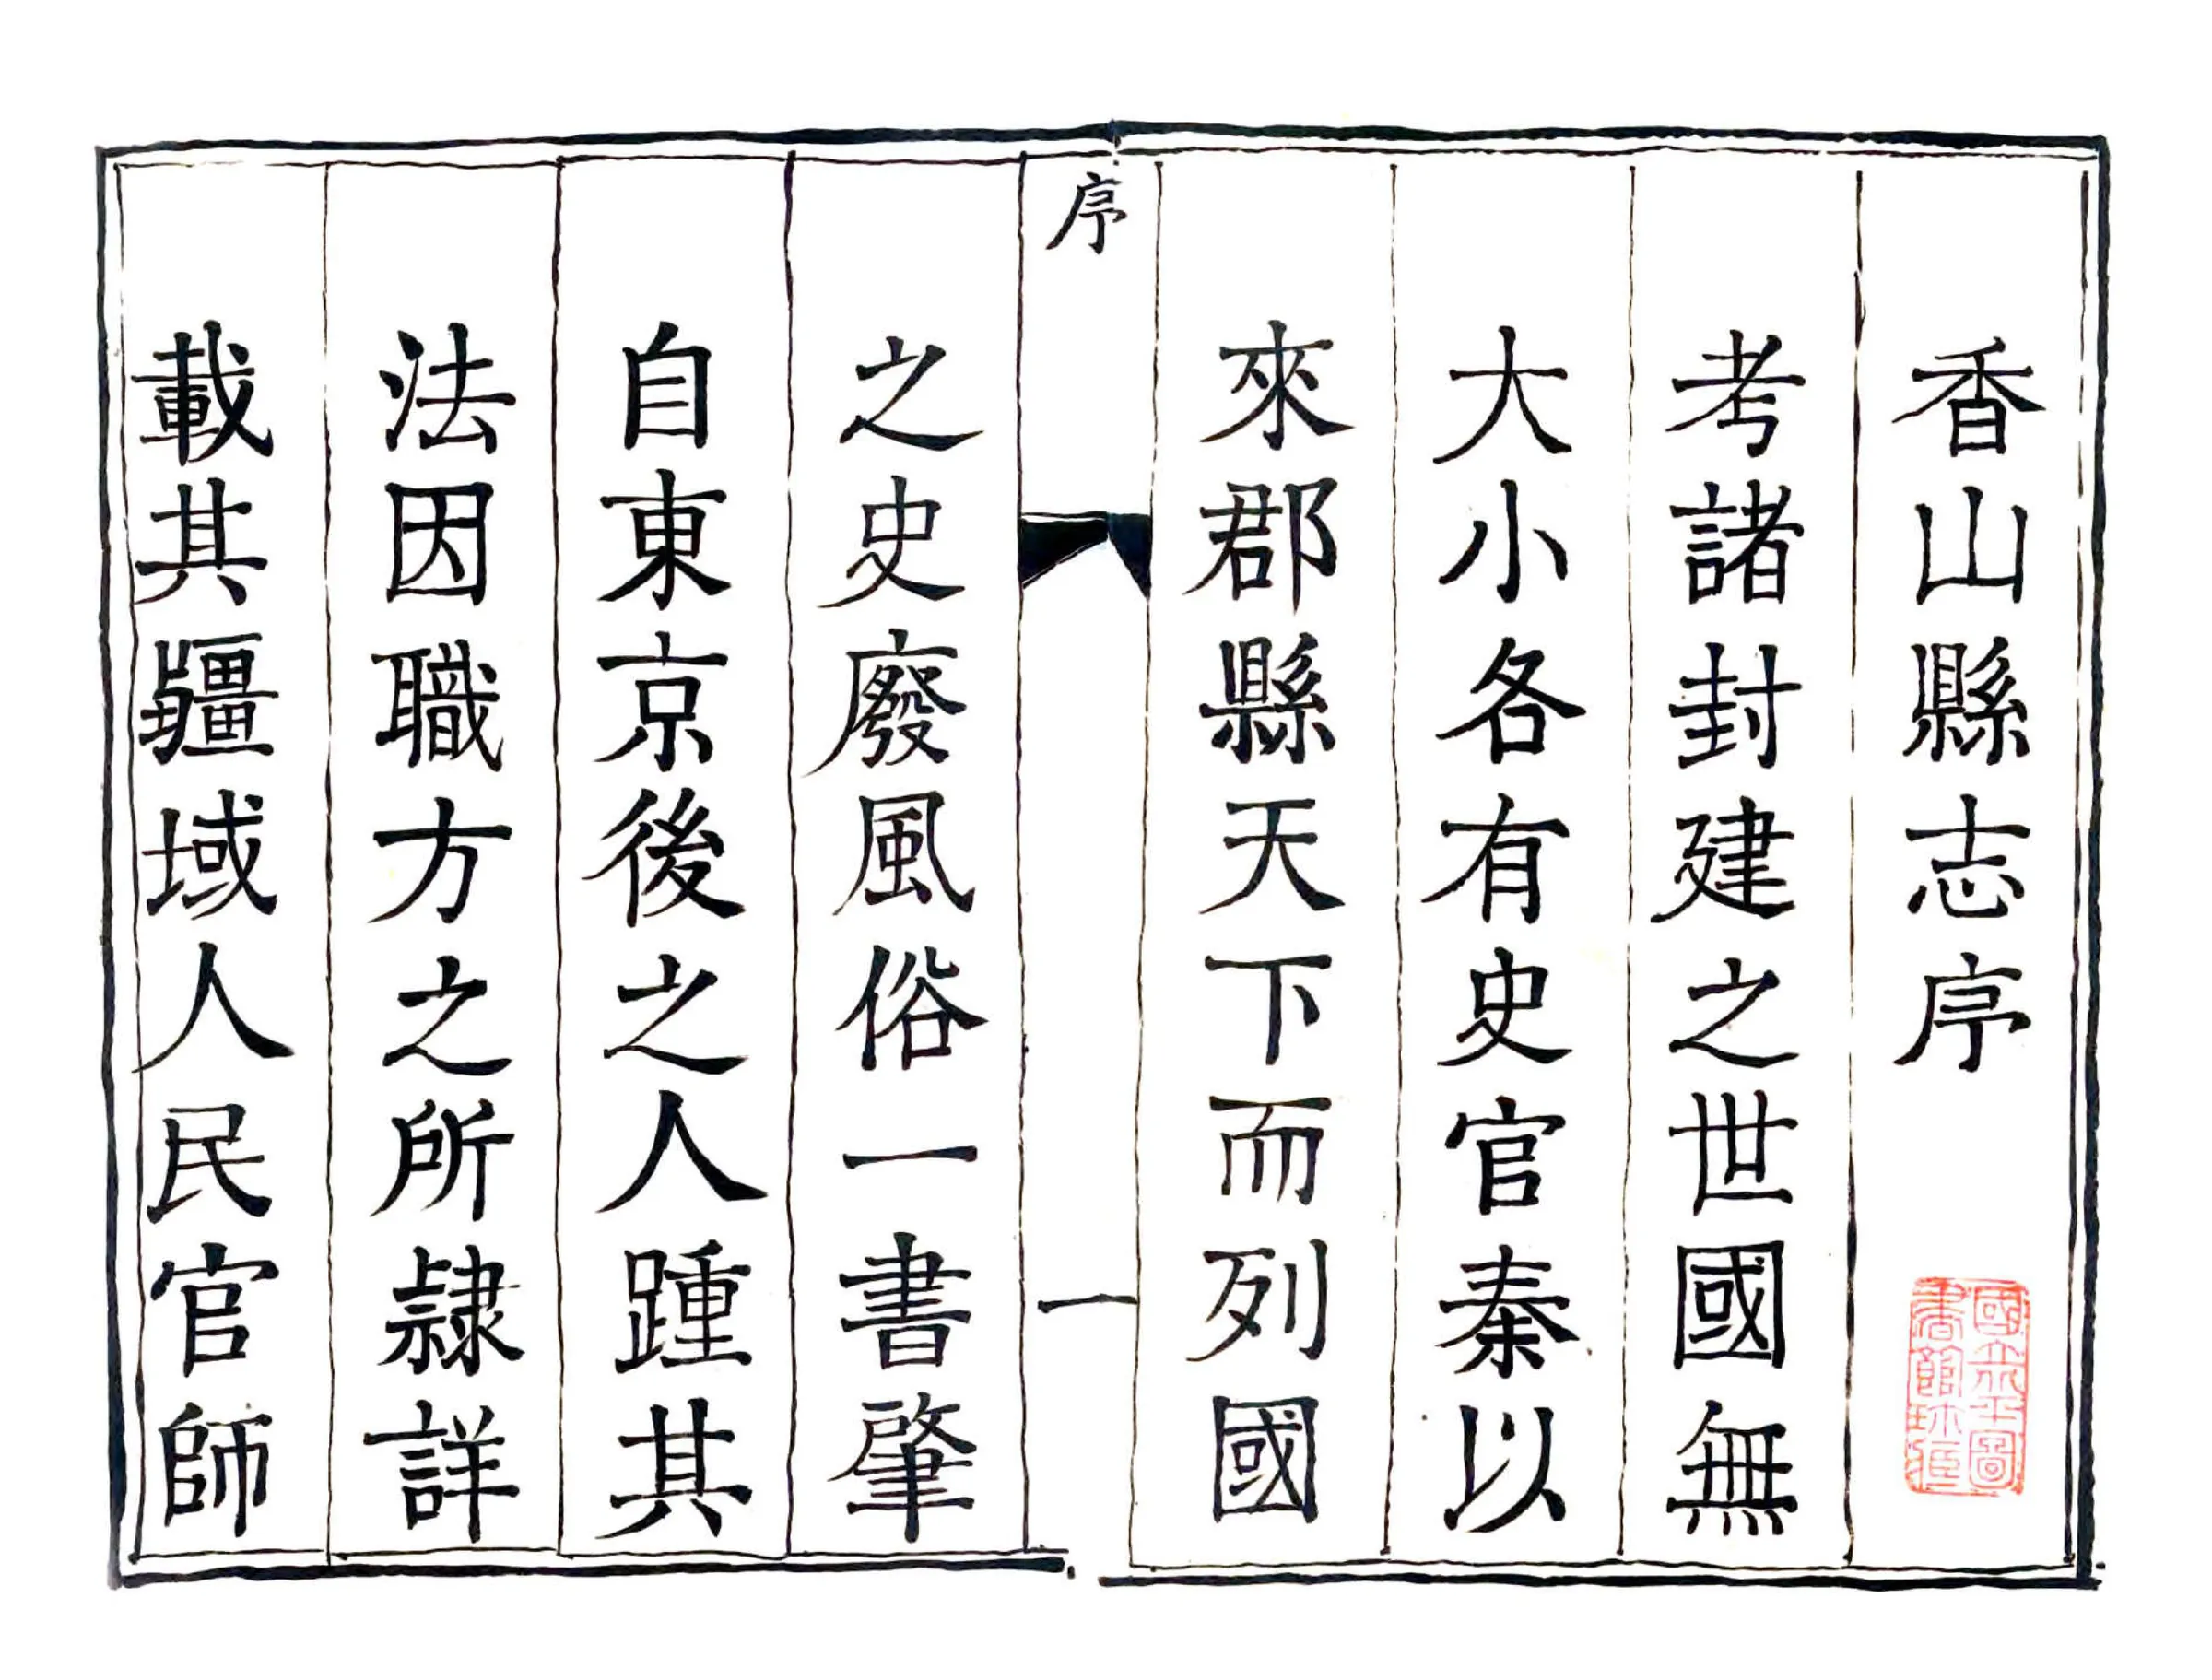 香山縣志序
國立北平圖
書館珍藏
考諸封建之世國無
大小各有史官秦以
來郡縣天下而列國
序
一
之史廢風俗一書肇
自東京後之人踵其
法因職方之所隷詳
載其疆域人民官師